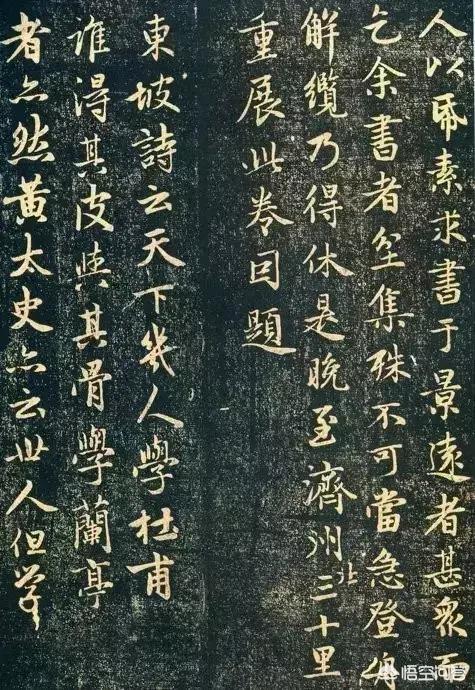 人以帋素求書于景遠者甚衆而
乞余書者坌集殊不可當急登舟
解纜乃得休是晚至濟州北三十里
重展此卷因題
東坡詩云天下幾人學杜甫
誰得其皮與其骨學蘭亭
者亦然黃太史亦云世人但學
悟空问答